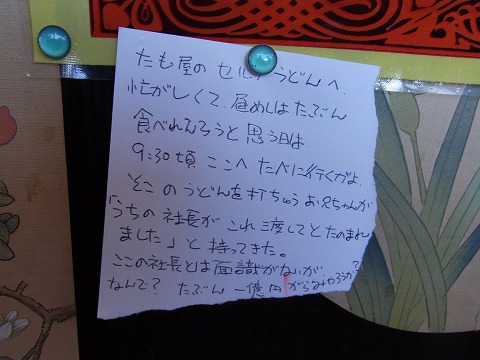 たも屋のセルフうどんへ、
忙がしくて、昼めしはたぶん
食べれんろうと思う日は
9:30頃 ここへ たべに行くがよ、
そこのうどんを打ちゅうお兄ちゃんが
「うちの社長が これ渡してとたのまれ
ました」と持ってきた。
ここの社長とは面識がないが、
なんで? たぶん 一億円がらみやろうか?